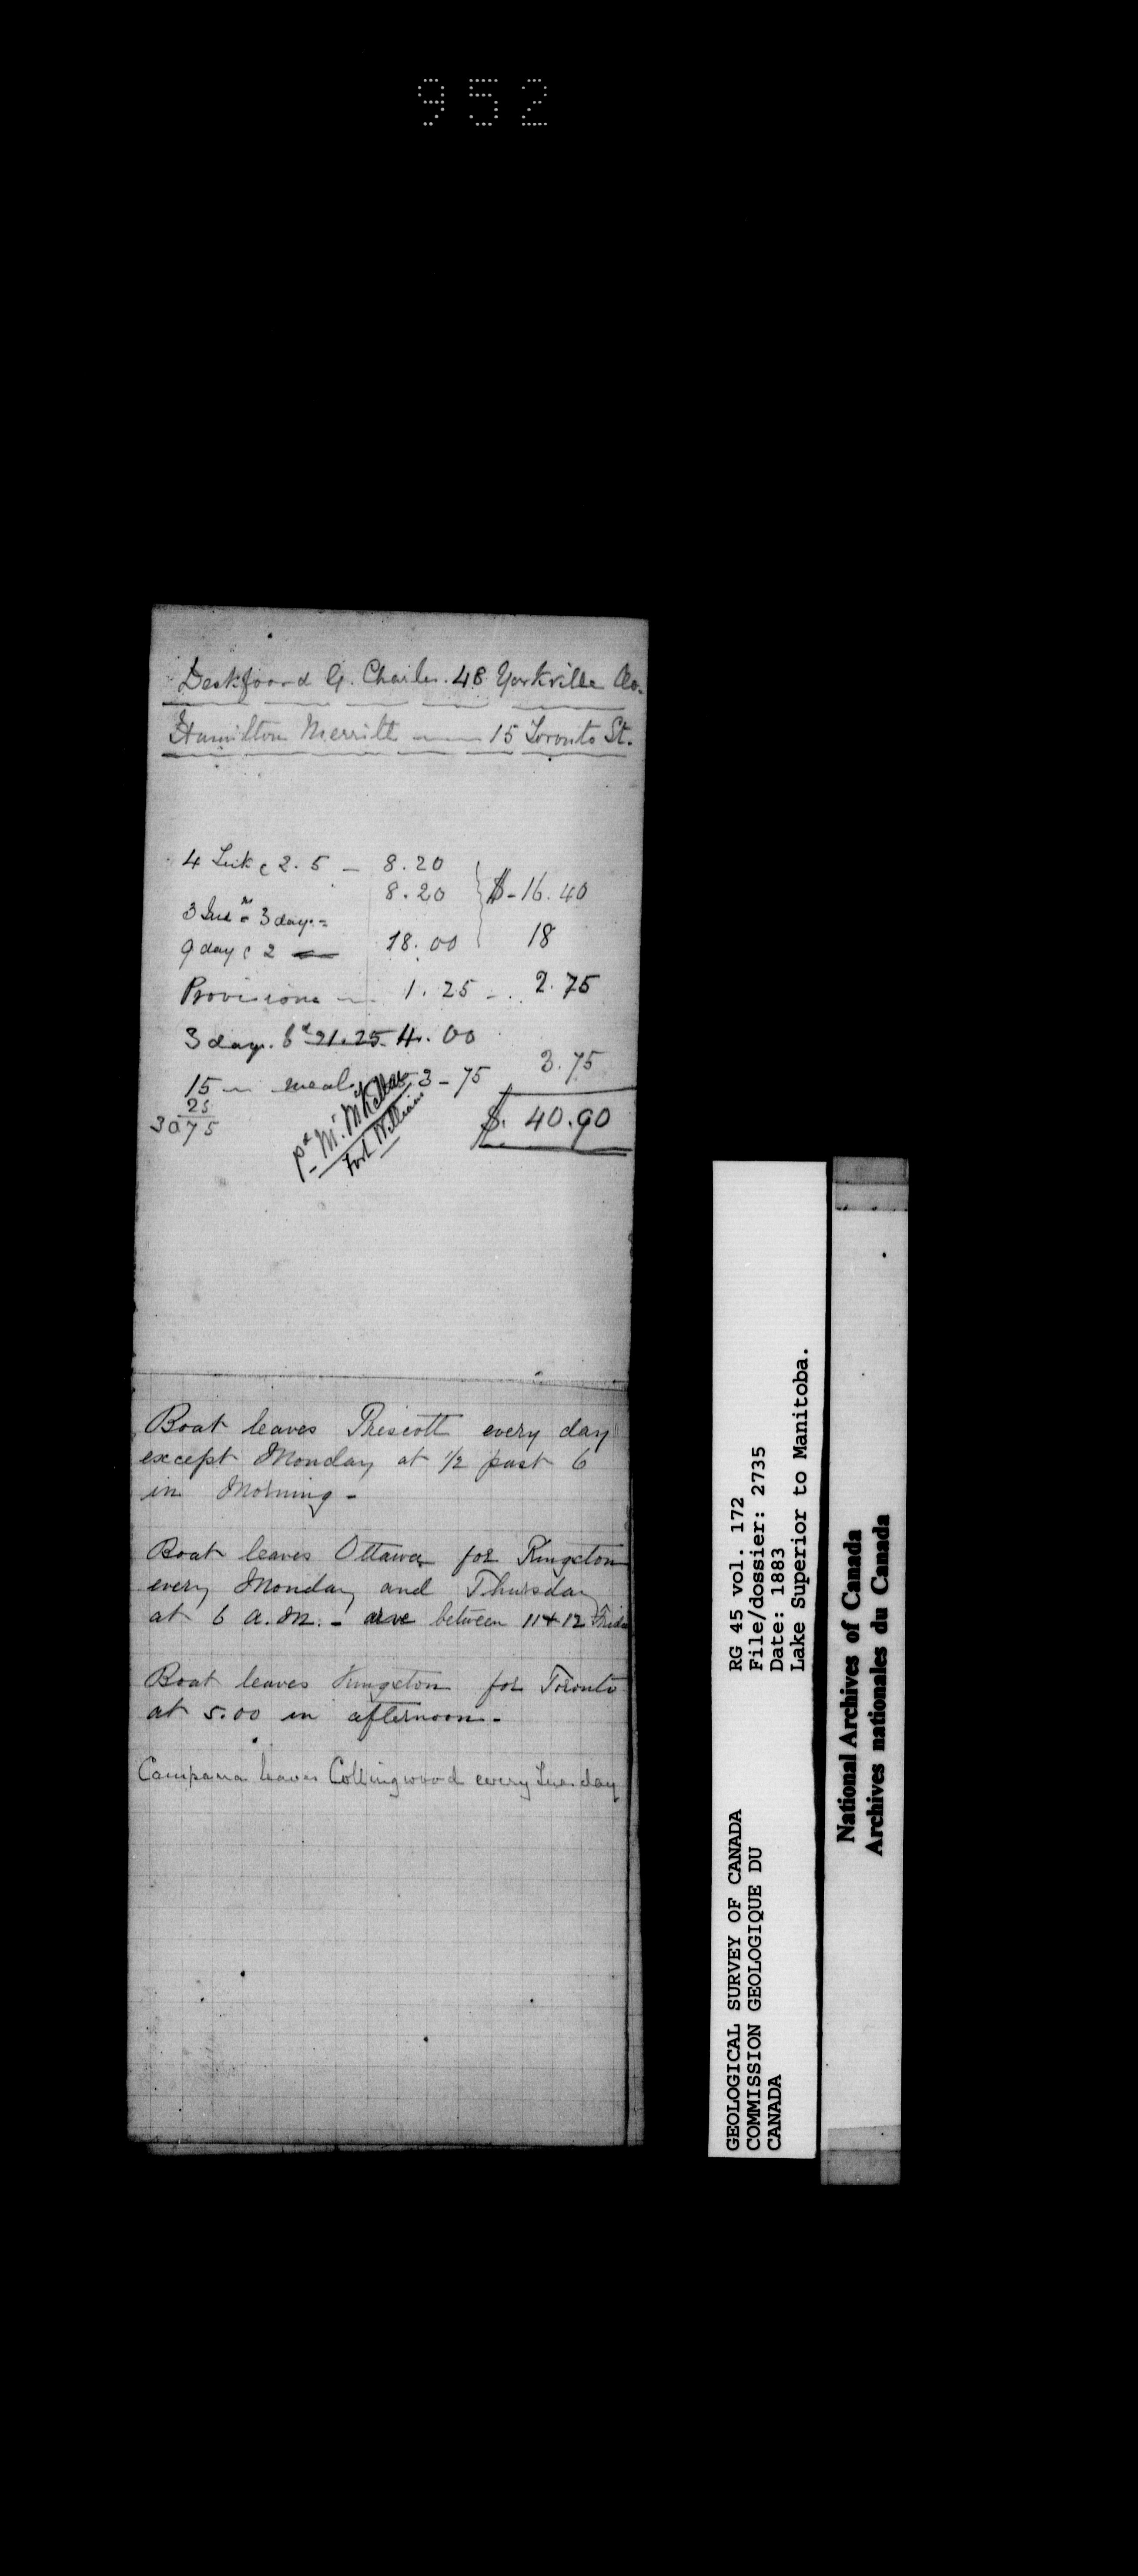 952
Deskfoord G. Charles. 48 Yorkville Av.
Hamilton Merritt — 15 Toronto St.
4 Tick @ 2.5 — 8.20
8.20 $-16.40
3 Ind 3 days =
9 day @ 2 — 18.00 18
Provisions — 1.25 — 2.75
3 day. bd 21.25 4.00
15 — meals 3-75 3.75
25
3075
pd Mr. McKellar
Fort William
$. 40.90
Boat leaves Prescott every day
except Monday at 1/2 past 6
in Morning -
Boat leaves Ottawa for Kingston
every Monday and Thursday
at 6 A.M. - arve between 11 & 12
Boat leaves Kingston for Toronto
at 5.00 in afternoon -
Campana leaves Collingwood every Tuesday
GEOLOGICAL SURVEY OF CANADA
COMMISSION GEOLOGIQUE DU
CANADA
RG 45 vol. 172
File/dossier: 2735
Date: 1883
Lake Superior to Manitoba.
National Archives of Canada
Archives nationales du Canada